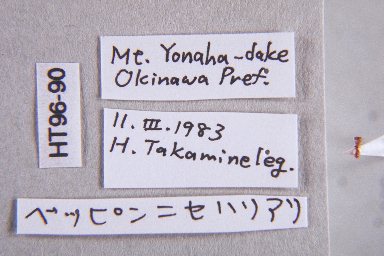 HT96-90
Mt. Yonaha-dake
Okinawa Pref.
11. III. 1983
H. Takamine leg.
ベッピンニセハリアリ